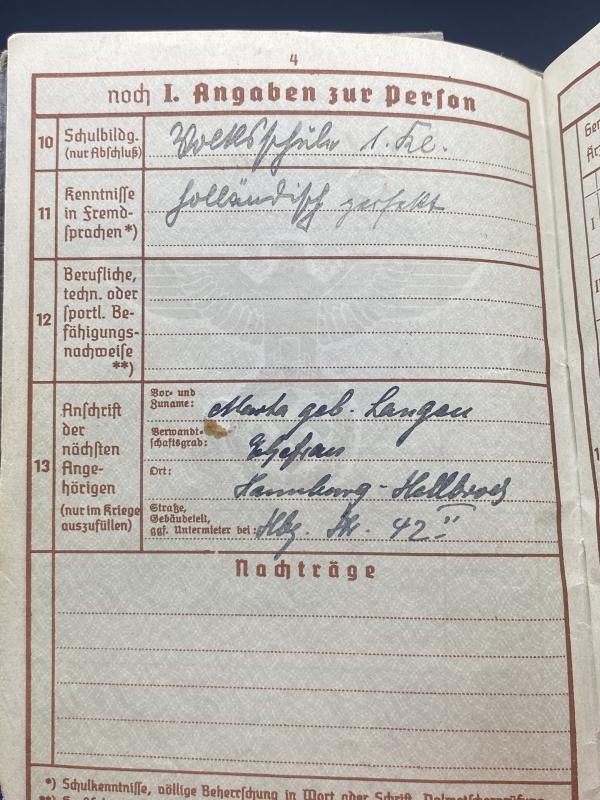 4
noch I. Angaben zur Person
10 Schulbildg. (nur Abschluß) Volksschule 1. Kl.
11 Kenntnisse in Fremd- sprachen*) holländisch perfekt
12 Berufliche, techn. oder sportl. Be- fähigungs- nachweise **)
13 Anschrift der nächsten Ange- hörigen (nur im Kriege auszufüllen)
Vor- und Zuname: geb. Langen
Verwandt- schaftsgrad: Ehefrau
Ort: Hamburg -
Straße, Gebäudeteil, ggf. Untermieter bei: Hbg. Str. 42 II
Nachträge
*) Schulkenntnisse, völlige Beherrschung in Wort oder Schrift,